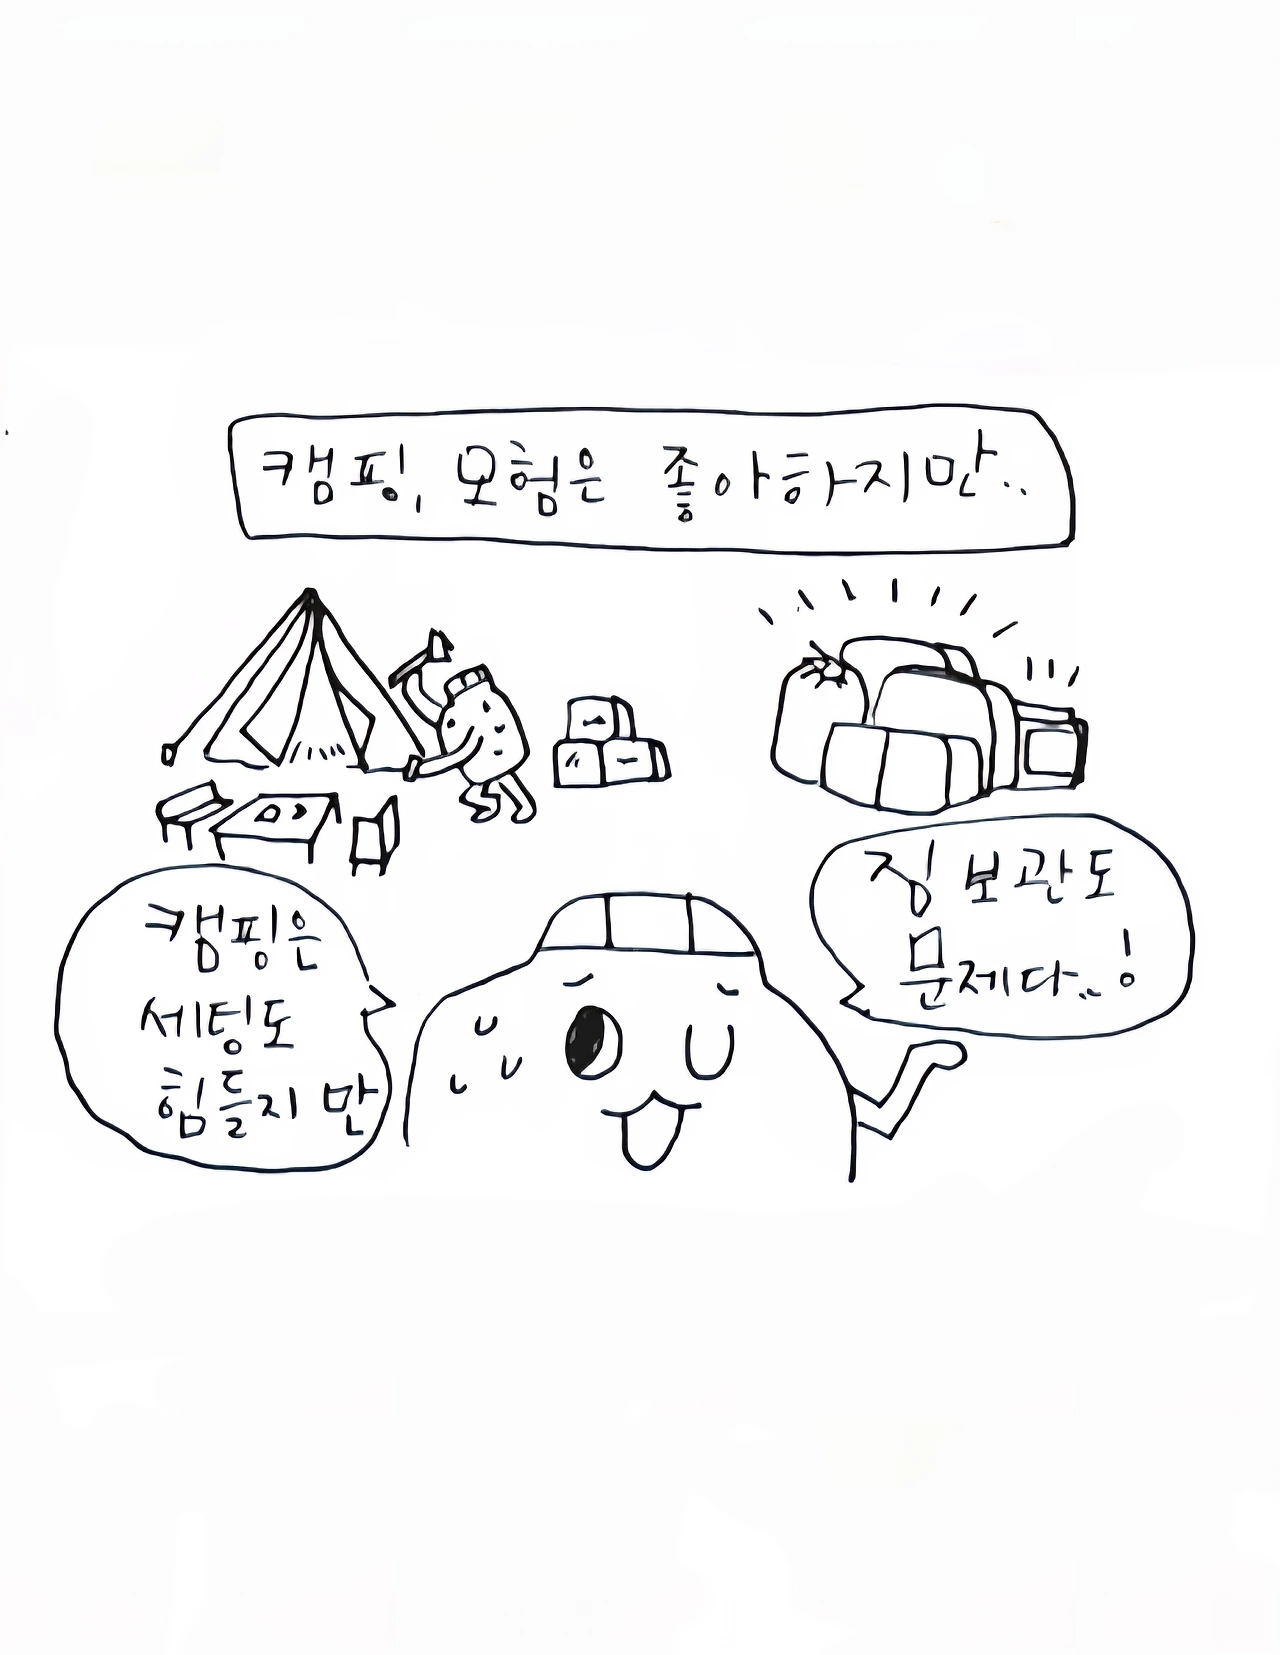 캠핑, 모험은 좋아하지만..
캠핑은
세팅도
힘들지만
짐 보관도
문제다..!